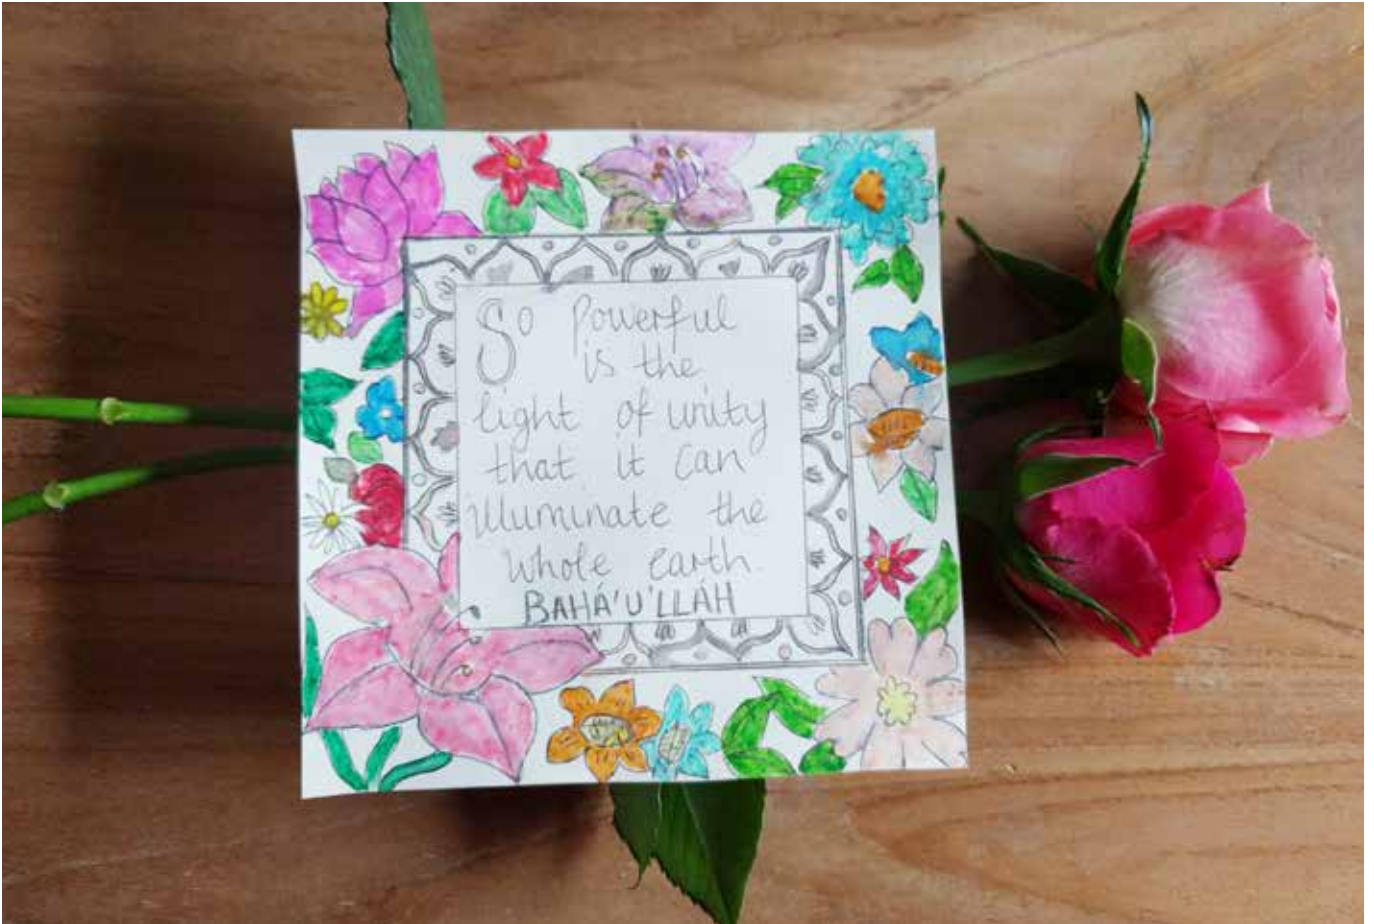 So Powerful
is the
light of unity
that it can
illuminate the
whole earth.
BAHÁ'U'LLÁH